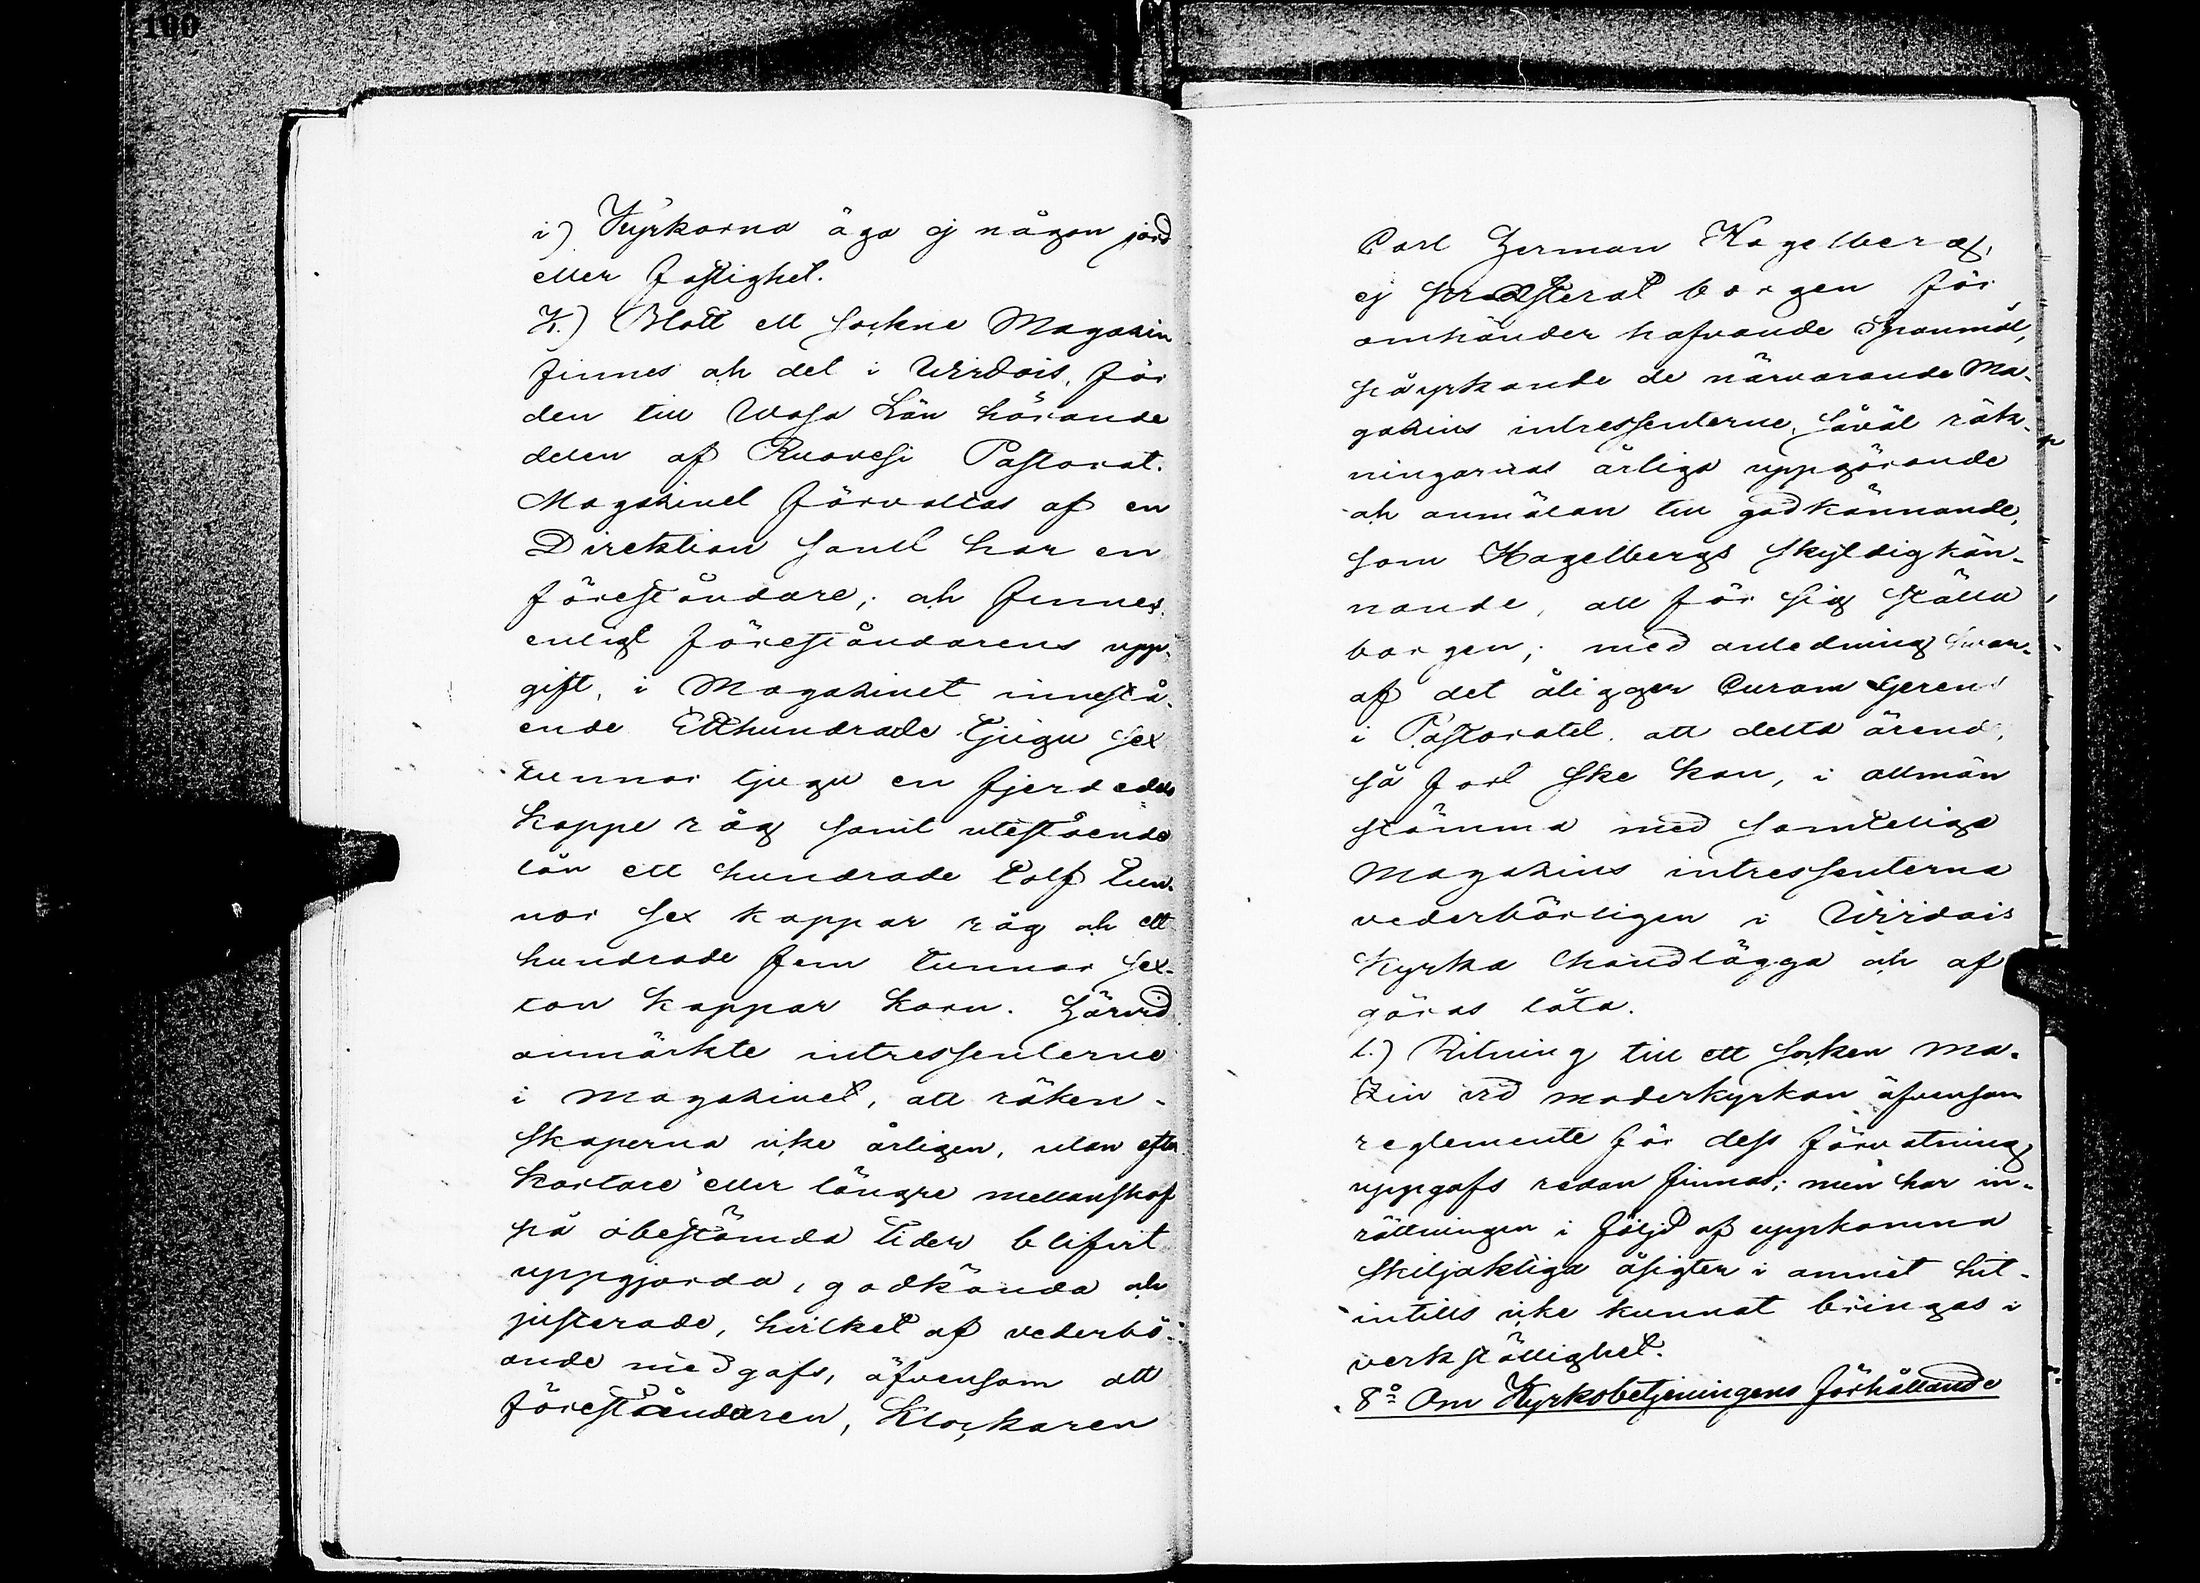 100
i) Kyrkorna äga ej någon jord
eller fastighet.
K.) Blott ett sockne Magazin
finnes och det i Wirdois, för
den till Wasa Län hörande
delen af Ruovesi Pastorat.
Magazinet förvaltas af en
Direktion samt har en
föreståndare; och finnes,
enligt föreståndarens upp-
gift, i Magazinet innestå-
ende Etthundrade Tjugu sex
tunnor tjugu en fjerdedels
kappe råg samt utestående
lån ett hundrade Tolf Tun-
nor sex kappar råg och ett
hundrade fem tunnor sex-
ton kappar korn. Härvid
anmärkte intressenterne
i Magazinet, att räken-
skaperna icke årligen, utan efter
kortare eller längre mellanskof
på obestämda tider blifvit
uppgjorda, godkända och
justerade, hvilket af vederbö-
ande medgafs, äfvensom att
föreståndaren, Klockaren
Carl Herman Hagelberg,
ej præsterat borgen för
omhänder hafvande Spanmål,
påyrkande de närvarande Ma-
gazins intressenterne, såväl räk-
ningarnas årliga uppgörande
och anmälan till godkännande,
som Hagelbergs skyldigkän-
nande, att för sig ställa
borgen; med anledning hvar-
af det åligger Curam Gerens
i Pastoratet, att detta ärende,
så fort ske kan, i allmän
stämma med samteliga
Magazins intressenterna
vederbörligen i Wirdois
Kyrka handlägga och af
göras låta.
l.) Ritning till ett socken Ma-
zin vid moderkyrkan äfvensom
reglemente för dess förvaltning
uppgafs redan finnas; men har in-
rättningen i följd af uppkomna
skiljaktiga åsigter i ämnet hit-
intills icke kunnat bringas i
verkställighet.
8:o Om Kyrkobetjeningens förhållande